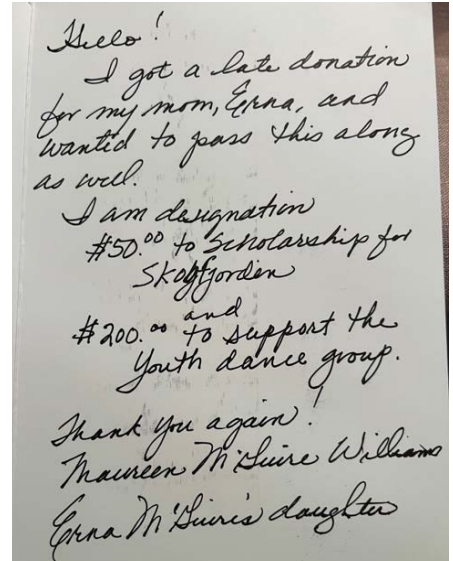 Hello!
I got a late donation
for my mom, Erna, and
wanted to pass this along
as well.
I am designation
$50.00 to Scholarship for
Skogfjorden
and
$200.00 to support the
Youth dance group.
Thank you again!
Maureen McGuire Williams
Erna McGuire's daughter